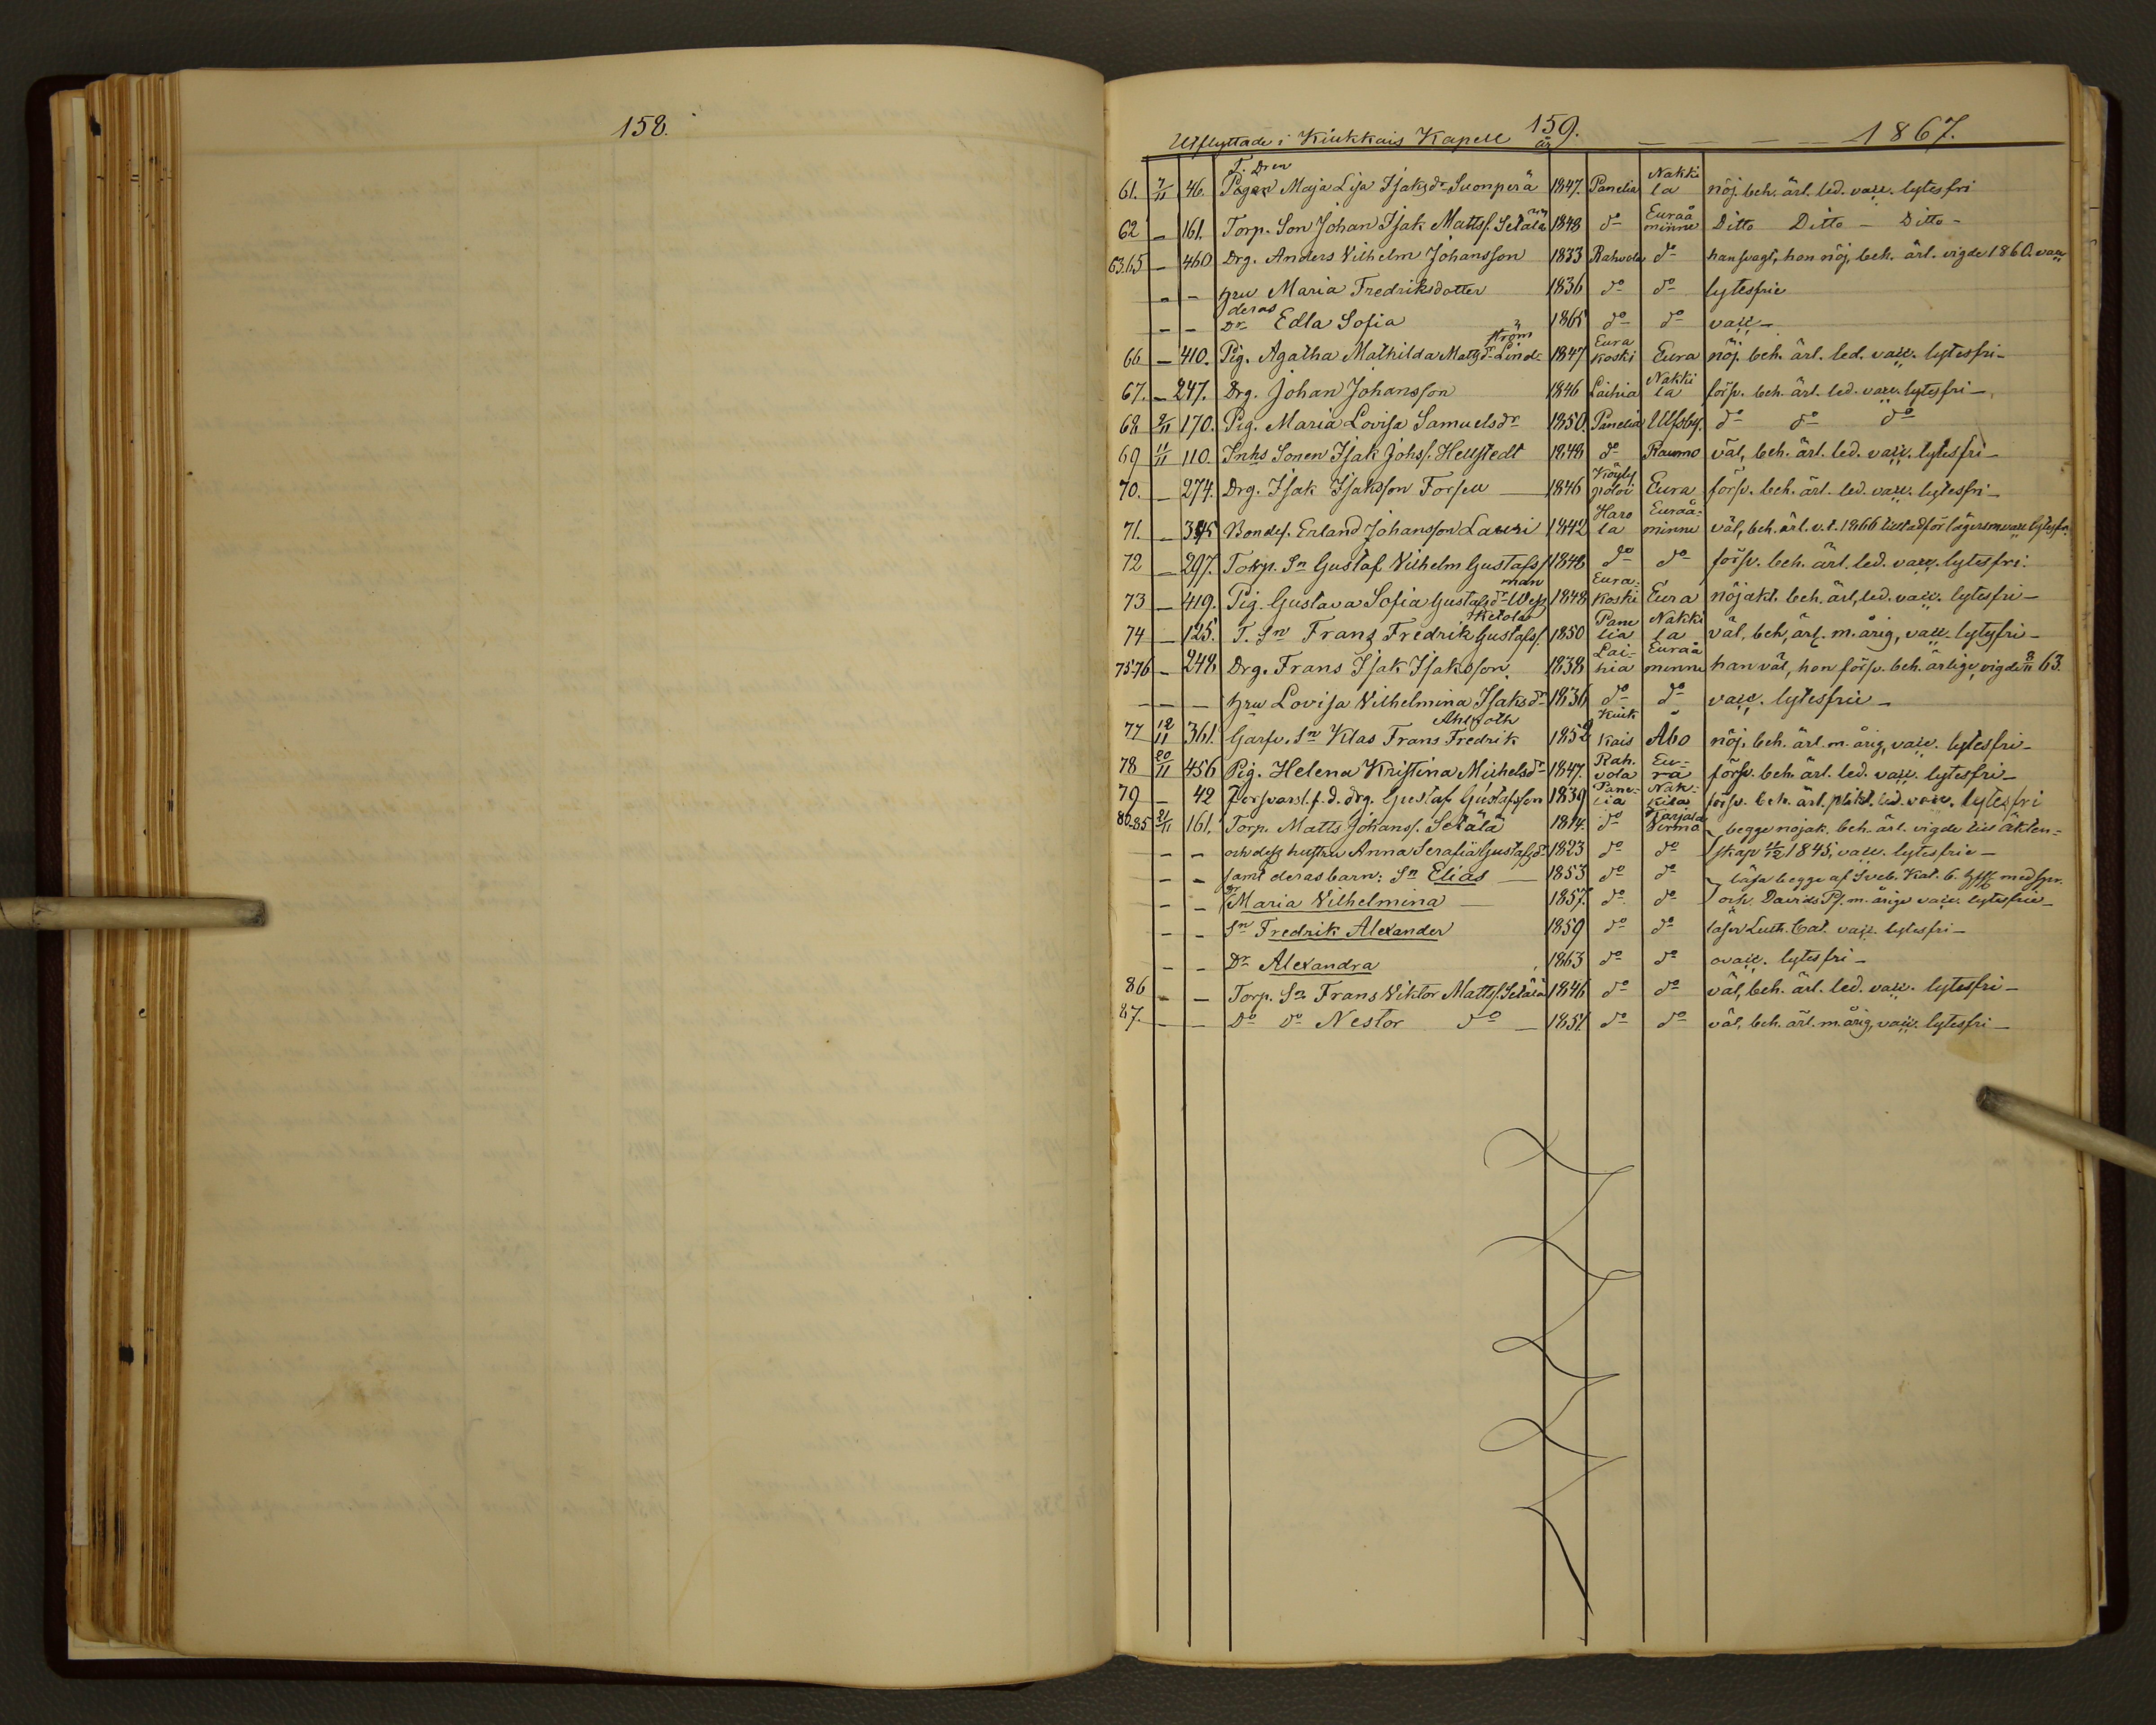 158.
159.
Utflyttade i Kiukkais Kapell år — — — — 1867.
61. 7/11 46. T. Dren Maja Lisa Isaksdr Suonperä 1847. Panelia Nakkila nöj. beh. ärl. led. vacc. lytesfri
62 — 161. Torp. Son Johan Isak Mattss. Setälä 1848 do Euraåminne Ditto Ditto — Ditto —
63.65 — 460 Drg. Anders Vilhelm Johansson 1833 Rahvola do han svagt, hon nöj, beh. ärl. vigde 1860. vacc
— — hru Maria Fredriksdotter 1836 do do lytesfrie
— — deras Dr Edla Sofia 1865 do do vacc —
66 — 410. Pig. Agatha Mathilda Matsdr Lindström 1847 Eurakoski Eura nöj. beh. ärl. led. vacc. lytesfri —
67. — 247. Drg. Johan Johansson 1846 Laihia Nakkila försv. beh. ärl. led. vacc. lytesfri —
68 9/11 170. Pig. Maria Lovisa Samuelsdr 1850. Panelia Ulfsby. do do do
69 11/11 110. Inhs Sonen Isak Johss. Hellstedt 1848 do Raumo väl, beh. ärl. led. vacc. lytesfri —
70. — 274. Drg. Isak Isaksson Forsell — 1846 Köylypolvi Eura försv. beh. ärl. led. vacc. lytesfri —
71. — 395 Bondes. Erland Johansson Lauri 1842 Harola Euraåminne väl, beh. ärl. v. t. 1866 lägersm vacc lytesfri
72 — 297. Torp. Sn Gustaf Vilhelm Gustafss 1848 do do försv. beh. ärl. led. vacc. lytesfri.
73 — 419. Pig. Gustava Sofia Gustafsdr Wessman 1848 Eurakoski Eura nöjakt. beh. ärl, led. vacc. lytesfri —
74 — 125. T. Sn Frans Fredrik Gustafss. Ketola 1850 Panelia Nakkila väl, beh, ärl. m. årig, vacc. lytesfri —
75.76 — 248 Drg. Frans Isak Isaksson. 1838 Laihia Euraåminne han väl, hon försv. beh. ärlige, vigde 8/11 63.
— — — hru Lovisa Vilhelmina Isaksdr 1836 do do vacc. lytesfrie —
77 12/11 361. Garfv. Sn Klas Frans Fredrik Ahlroth 1852 Kiukkais Åbo nöj. beh. ärl. m. årig, vacc. lytesfri —
78 20/11 456 Pig. Helena Kristina Michelsdr 1847. Rahvola Eura försv. beh. ärl. led. vacc. lytesfri —
79 — 42 Försvarsl. f. d. drg. Gustaf Gustafsson 1839 Panelia Nakkila försv. beh. ärl. plikt. led. vacc. lytesfri
80-85 21/11 161. Torp. Matts Johanss. Setälä 1814. do Karjala Virmo begge nöjak. beh. ärl. vigde till äkten-
— — och dess hustru Anna Serafia Gustafsdr 1823 do do skap 11/12 1845, vacc. lytesfrie —
— — samt deras barn: Sn Elias — 1853 do do läsa begge af Sveb. Kat. 6. med spr.
— — Dr Maria Vilhelmina — 1857. do do och Davids Ps. m. årige vacc. lytesfrie —
— — Sn Fredrik Alexander 1859 do do läser Luth. Cat. vacc. lytesfri —
— — Dr Alexandra 1863 do do ovacc. lytesfri —
86 — — Torp. Sn Frans Viktor Mattss. Setälä 1846 do do väl, beh. ärl. led. vacc. lytesfri —
87. — — Do Do Nestor do — 1851 do do väl, beh. ärl. m. årig, vacc. lytesfri —